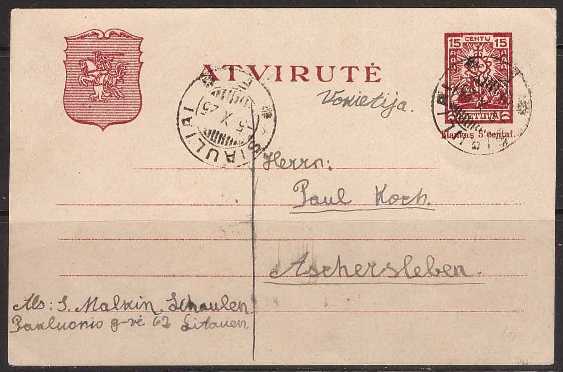 15 CENTŲ 15
ATVIRUTĖ
LIETUVA
Blankas 5 centai.
ŠIAULIAI
5 X 25
ŠIAULIAI
Vokietija.
Herrn:
Paul Koch.
Aschersleben.
Abs: S. Malkin, Schaulen
g-vė 62 Litauen